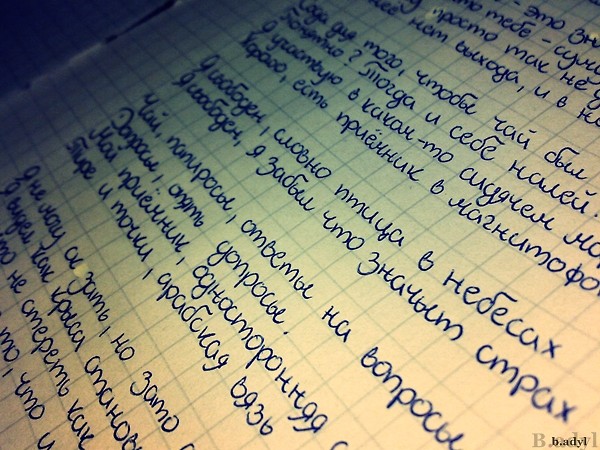 - это зн
тебе - случи
просто так не
нет выхода, и в не
Сода для того, чтобы чай был
Понятно? Тогда и себе налей.
Я участвую в каком-то сидячем ма
Хорошо, есть приёмник в магнитофон
Я свободен, словно птица в небесах
Я свободен, я забыл что значыт страх
Чай, папиросы, ответы на вопросы
Допросы, опять допросы.
Мой приёмник, односторонняя с
Тире и точки, арабская вязь
Я не могу сказать, но зато
Я видел как крыса становы
не стереть как
то, что
B.adyl
b.adyl